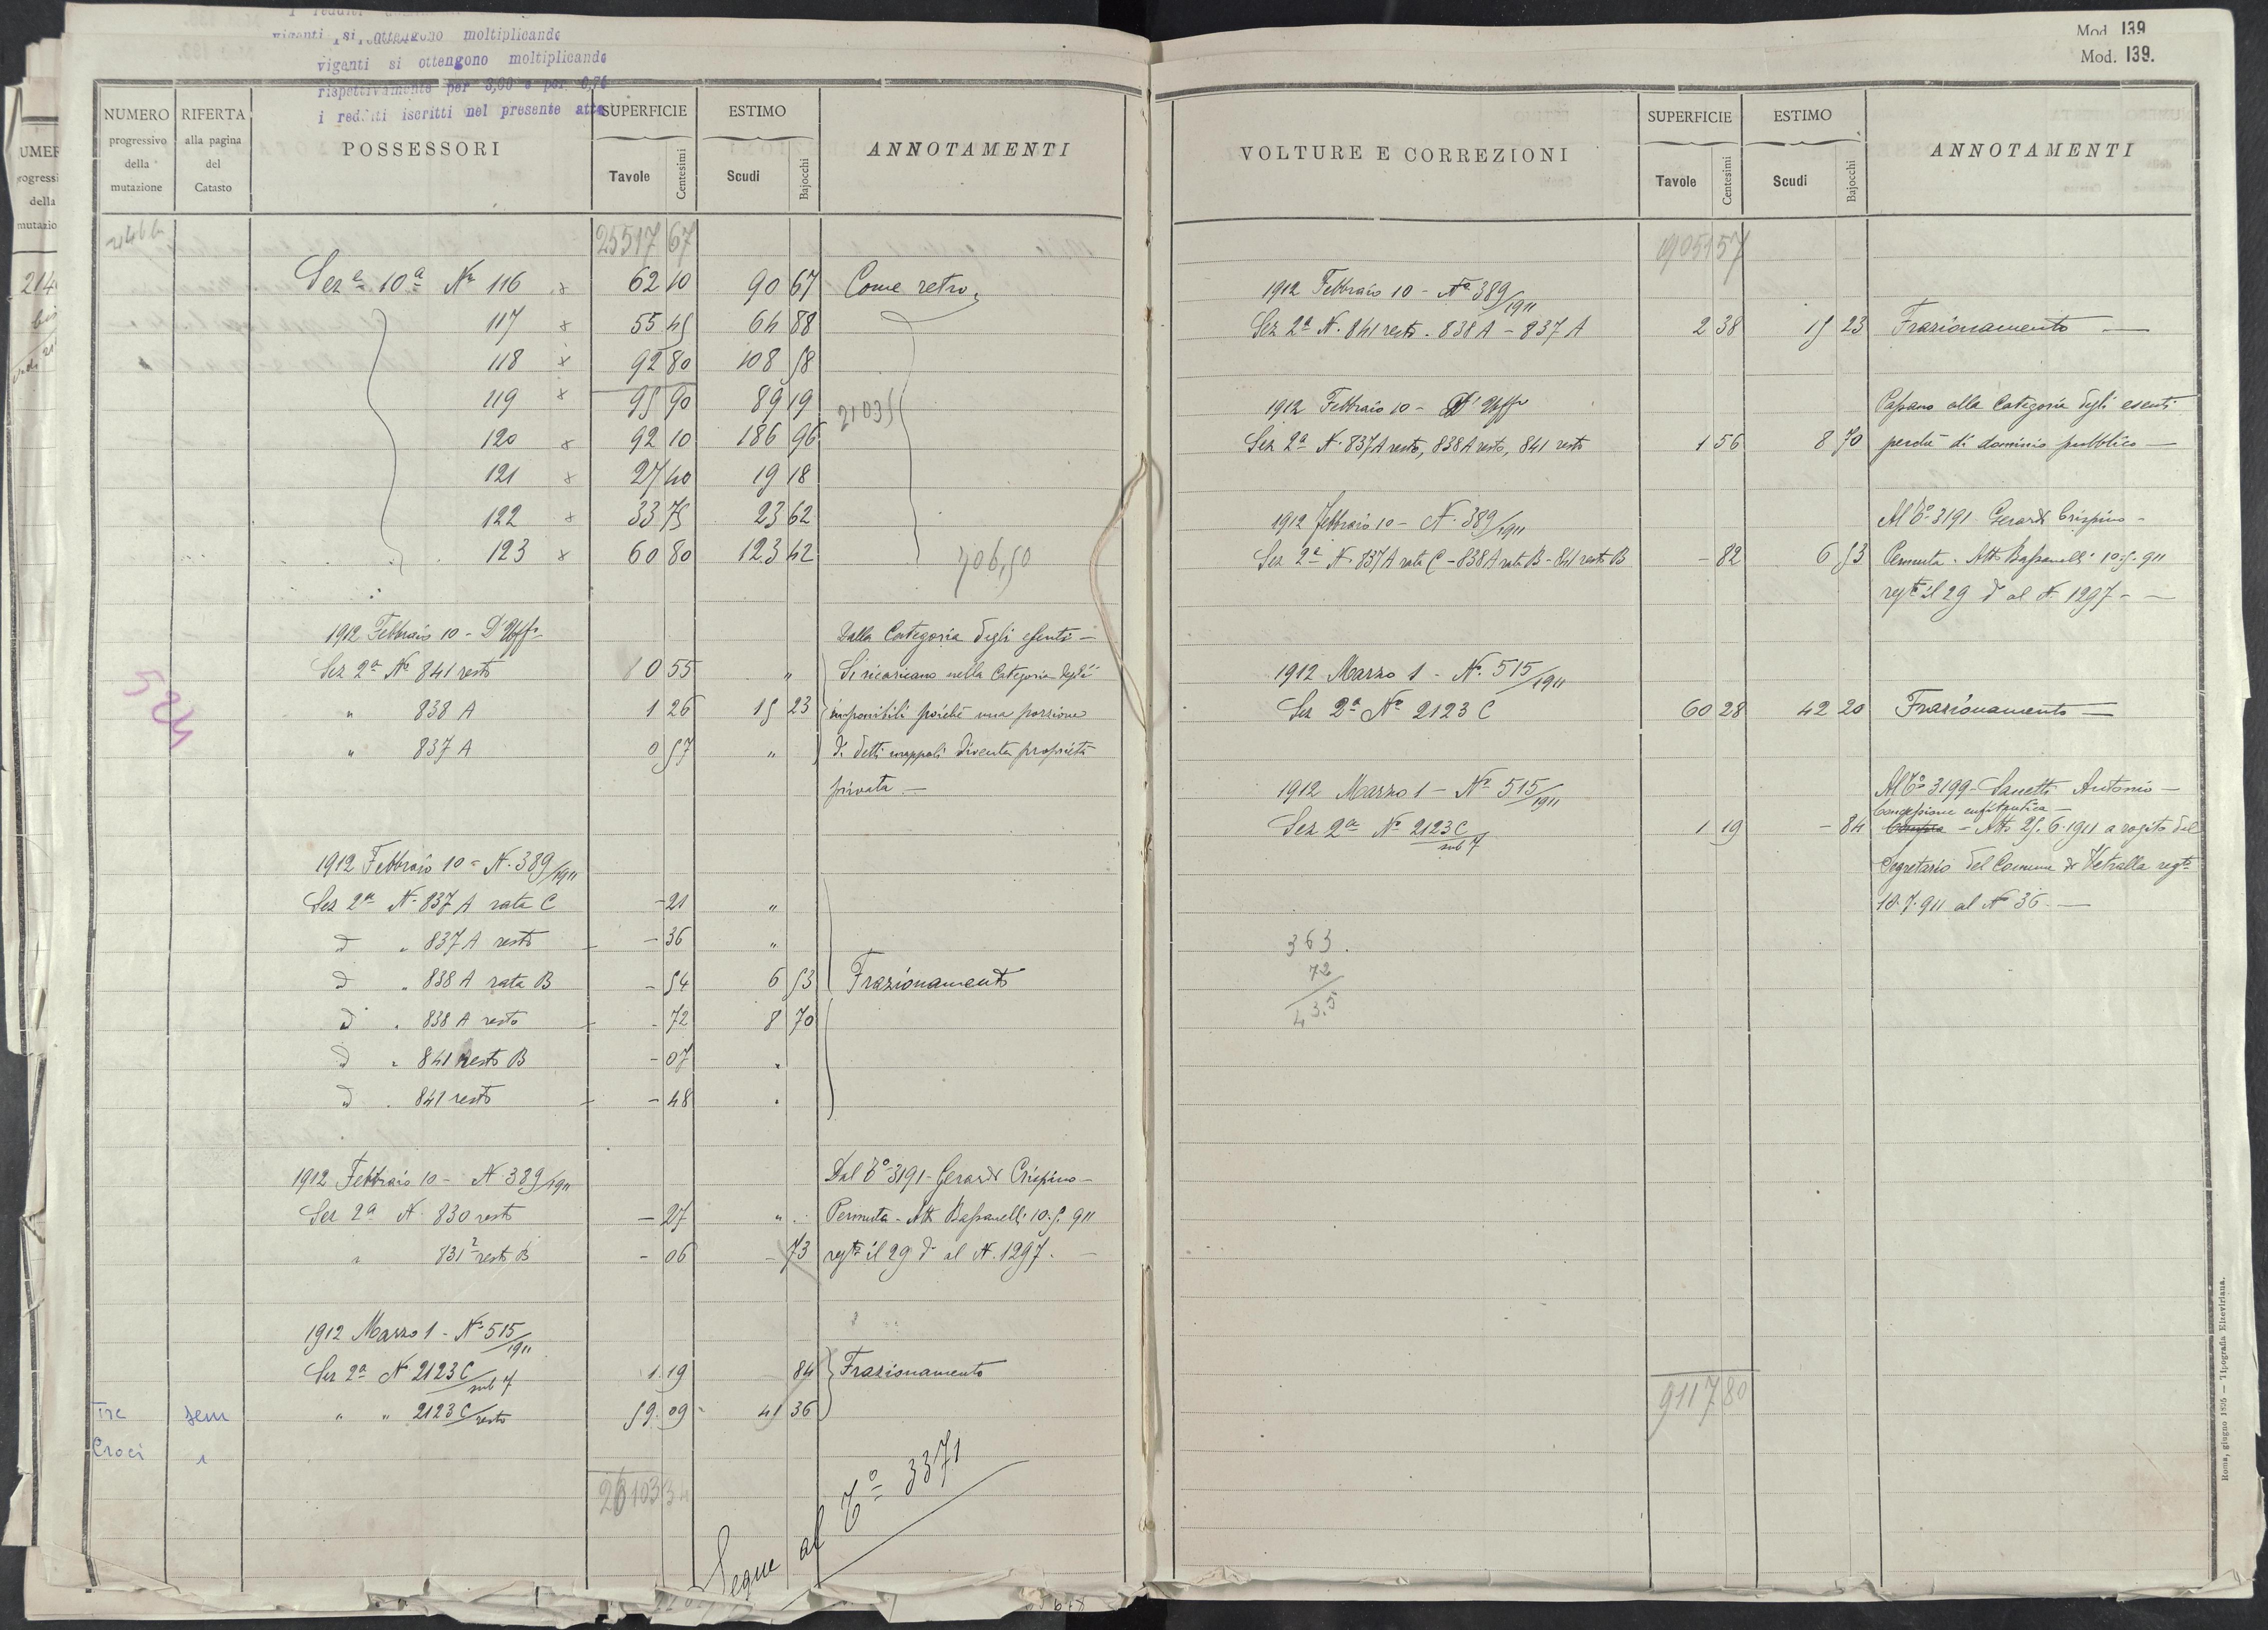 viganti si ottengono moltiplicando
viganti si ottengono moltiplicando
rispettivamente per 3,00 e per 0,75
i redditi iscritti nel presente atto
NUMERO progressivo della mutazione
RIFERTA alla pagina del Catasto
POSSESSORI
SUPERFICIE Tavole Centesimi
ESTIMO Scudi Bajocchi
ANNOTAMENTI
25517 67
Sez.e 10a No 116 x 62 10 90 67 Come retro
117 x 55 45 64 88
118 x 92 80 108 58
119 x 95 90 89 19
2103
120 x 92 10 186 96
121 x 27 40 19 18
122 x 33 75 23 62
123 x 60 80 123 42
706,50
1912 Febbraio 10 - D'Uff. Dalla Categoria degli esenti -
Sez 2a No 841 resto 0 55 " Si ricaricano nella Categoria degli
" 838 A 1 26 15 23 imponibili poichè una porzione
" 837 A 0 57 " di detti mappali diventa proprietà
privata -
524
1912 Febbraio 10 - N. 389/1911
Sez 2a N. 837 A rata C - 21 "
d " 837 A resto - 36 "
d " 838 A rata B - 54 6 53 Frazionamento
d " 838 A resto - 72 8 70
d " 841 resto B - 07 "
d " 841 resto - 48 "
1912 Febbraio 10 - N 389/1911 Dal To 3191 - Gerardi Crispino -
Sez 2a N. 830 resto - 27 " Permuta - Atto Bassanelli 10.5.911
" 831 2 resto B - 06 - 73 regto il 29 do al N. 1297. -
1912 Marzo 1 - No 515/1911
Sez 2a No 2123 C/sub 7 1.19 84 Frazionamento
" " 2123 C/resto 59.09 41 36
Tre Croci
sem
1
26103 34
Segue al To 3371
Mod. 139
Mod. 139.
VOLTURE E CORREZIONI
SUPERFICIE Tavole Centesimi
ESTIMO Scudi Bajocchi
ANNOTAMENTI
9051 57
1912 Febbraio 10 - No 389/1911
Sez 2a N. 841 resto - 838 A - 837 A 2 38 15 23 Frazionamento -
1912 Febbraio 10 - D'Uff. Passano alla Categoria degli esenti
Sez 2a N. 837A resto, 838A resto, 841 resto 1 56 8 70 perchè di dominio pubblico -
1912 Febbraio 10 - N. 389/1911 Al To 3191 Gerardi Crispino -
Sez 2a N. 837A rata C - 838A rata B - 841 resto B - 82 6 53 Permuta - Atto Bassanelli 10.5.911
regto il 29 do al N. 1297 - -
1912 Marzo 1 - No 515/1911
Sez 2a No 2123 C 60 28 42 20 Frazionamento -
1912 Marzo 1 - No 515/1911 Al To 3199 - Sanetti Antonio -
Concessione enfiteutica -
Sez 2a No 2123 C/sub 7 1 19 - 84 - Atto 25.6.1911 a rogito del
Segretario del Comune di Vetralla regto
10.7.911 al No 36 -
363
72
43.5
9117 80
Roma, giugno 1895 — Tipografia Elzeviriana.